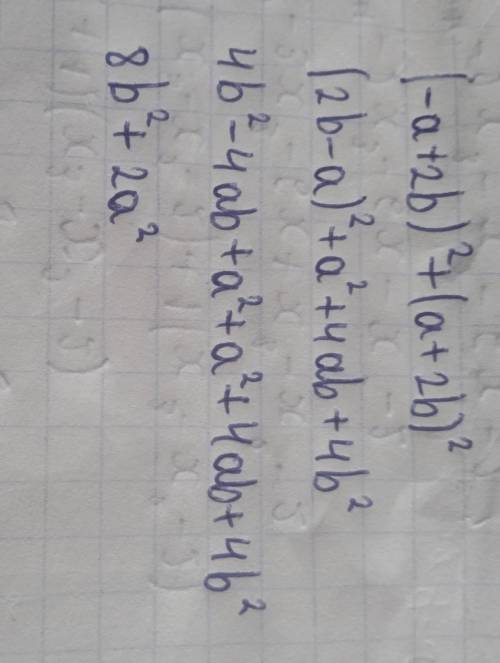 (-a+2b)²+(a+2b)²
(2b-a)²+a²+4ab+4b²
4b²-4ab+a²+a²+4ab+4b²
8b²+2a²